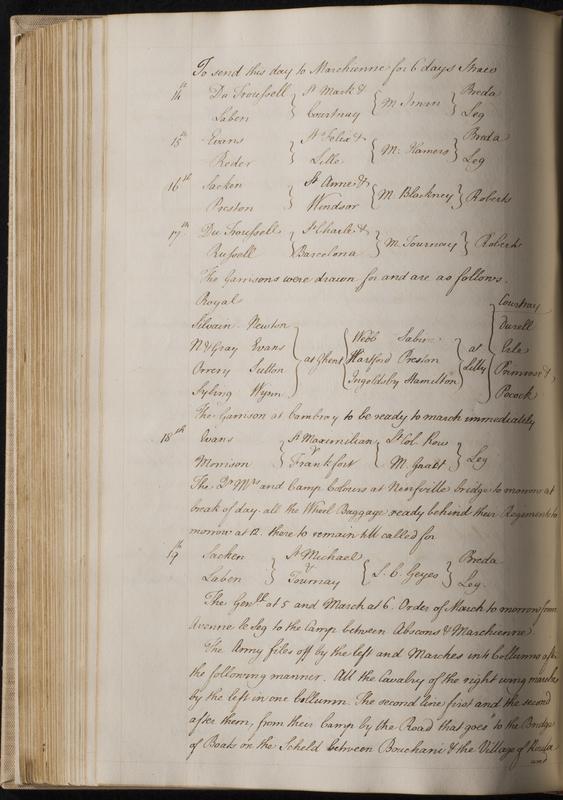 To send this day to Marchienne for 6 days Straw
14th Du Troussell } St Mark & { M. Irwin } Breda
Laben Courtnay Leg
15th Evans } St Felix & { M. Kamers } Breda
Reder Lille Leg
16th Sacken } St Anne & { M. Blackney } Roberts
Preston Windsor
17th Du Troussell } St Charle & } M. Tournay } Roberts
Russell Barcelona
The Garrisons were drawn for and are as follows.
Royals Courtnay
Silvain Newton Webb Sabine Durell
N & Gray Evans } at Ghent { Hartford Preston } at Lilly { Erle
Orrery Sutton Ingoldsby Hamilton Primrose,
Sybing Wynn Pocock
The Garrison at Cambray to be ready to march immediately
18th Evans } St Maximilian { St Col. Row } Leg
Morrison Frankfort M. Graatt
The Dr Mrs and Camp Colours at Neufville bridge to morrow at
break of day. all the Wheel Baggage ready behind their Regements to
morrow at 12. there to remain till called for
19th Sacken } St Michael { L. C. Geyes } Breda
Laben Tournay Leg.
The Genll at 5 and March at 6. Order of March to morrow from
Avenne le Seg to the Camp between Abscons & Marchienne.
The Army files off by the left and Marches in 4 Collumns after
the following manner. All the Cavalry of the right wing marches
by the left in one Collumn. The second line first and the second
after them, from their Camp by the Road that goes to the Bridge
of Boats on the Scheld between Bouchani & the Village of
and